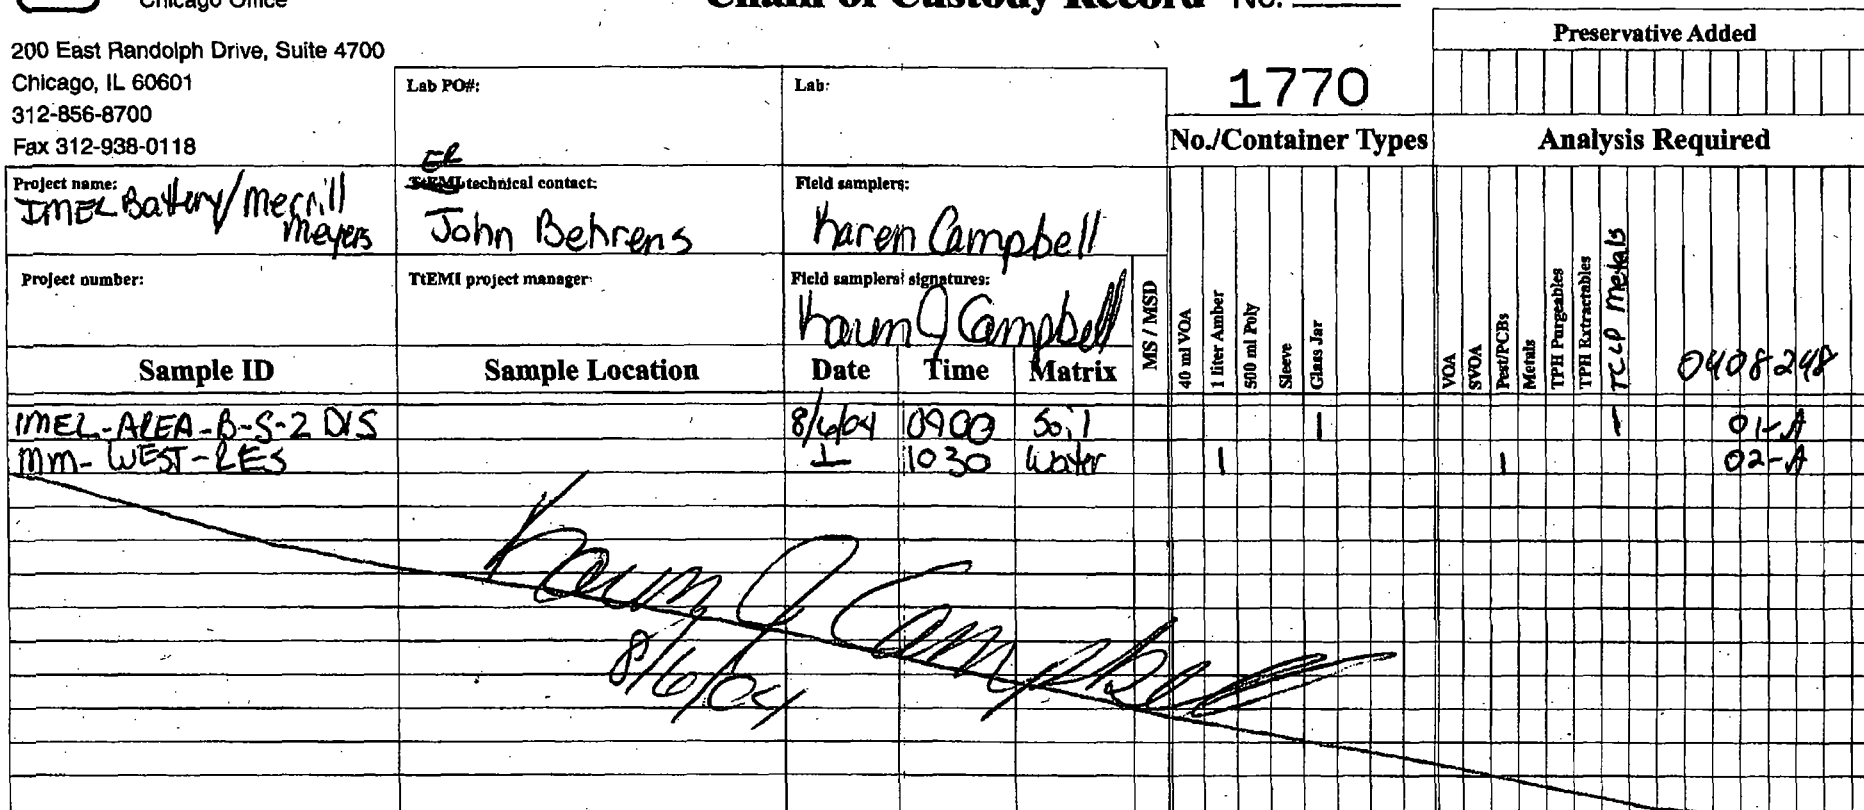 Chicago Office
Chain of Custody Record No.
200 East Randolph Drive, Suite 4700
Chicago, IL 60601
312-856-8700
Fax 312-938-0118
Preservative Added
1770
Lab PO#:
Lab:
No./Container Types
Analysis Required
Project name:
IMEL Battery/Merrill
Meyers
ER
TtEMI technical contact:
John Behrens
Field samplers:
Karen Campbell
Project number:
TtEMI project manager:
Field samplers' signatures:
Karen J Campbell
MS / MSD
40 ml VOA
1 liter Amber
500 ml Poly
Sleeve
Glass Jar
VOA
SVOA
Pest/PCBs
Metals
TPH Purgeables
TPH Extractables
TCLP Metals
0408248
Sample ID Sample Location Date Time Matrix
IMEL-AREA-B-S-2 DIS 8/6/04 0900 Soil 1 1 01-A
MM-WEST-RES 1030 Water 1 1 02-A
Karen J Campbell
8/6/04